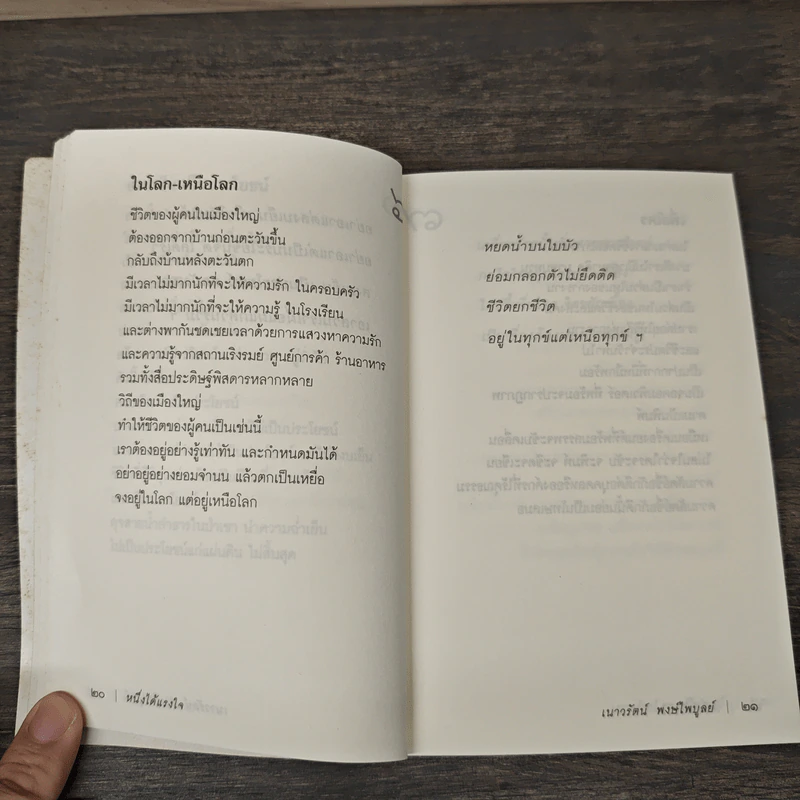 ในโลก-เหนือโลก
ชีวิตของผู้คนในเมืองใหญ่
ต้องออกจากบ้านก่อนตะวันขึ้น
กลับถึงบ้านหลังตะวันตก
มีเวลาไม่มากนักที่จะให้ความรัก ในครอบครัว
มีเวลาไม่มากนักที่จะให้ความรู้ ในโรงเรียน
และต่างพากันชดเชยเวลาด้วยการแสวงหาความรัก
และความรู้จากสถานเริงรมย์ ศูนย์การค้า ร้านอาหาร
รวมทั้งสื่อประดิษฐ์พิสดารหลากหลาย
วิถีของเมืองใหญ่
ทำให้ชีวิตของผู้คนเป็นเช่นนี้
เราต้องอยู่อย่างรู้เท่าทัน และกำหนดมันได้
อย่าอยู่อย่างยอมจำนน แล้วตกเป็นเหยื่อ
จงอยู่ในโลก แต่อยู่เหนือโลก
๒๐ | หนึ่งใต้แรงใจ
หยดน้ำบนใบบัว
ย่อมกลอกตัวไม่ยึดติด
ชีวิตยกชีวิต
อยู่ในทุกข์แต่เหนือทุกข์ ฯ
เนาวรัตน์ พงษ์ไพบูลย์ | ๒๑